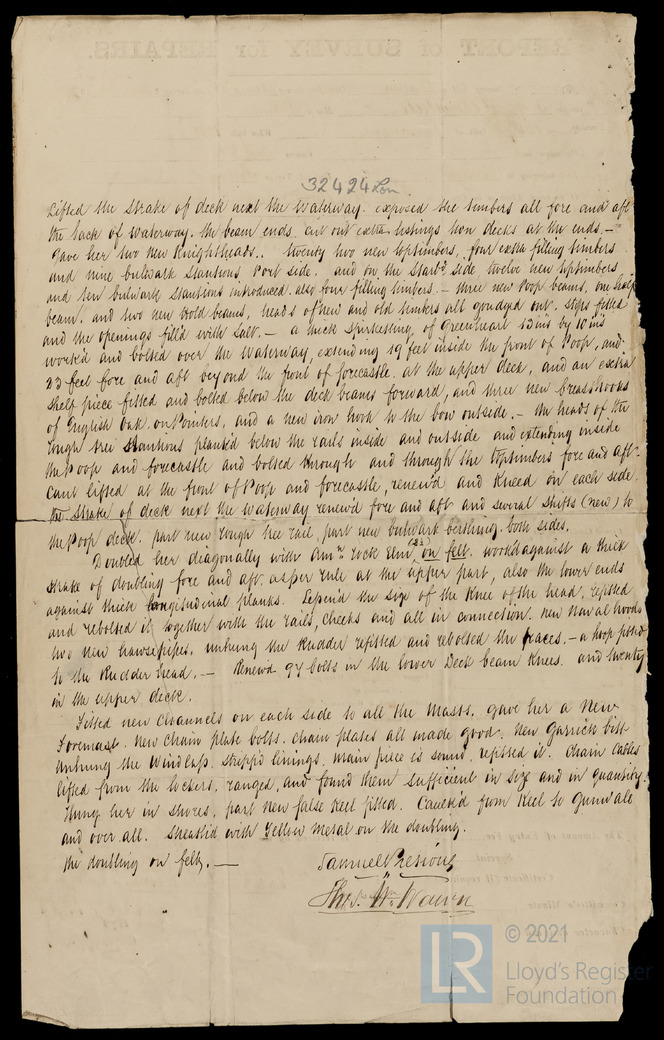 32424 Lon.
Lifted the Strake of deck next the Waterway. exposed the timbers all fore and aft
the back of Waterway. the beam ends. cut out extra listings two decks at the ends. —
Gave her two new Knightheads. twenty two new toptimbers, four extra filling timbers
and nine bulwark Stantions Port side. and on the Starbd side twelve new toptimbers
and ten bulwark Stantions introduced. also four filling timbers. – three new Poop beams, one half
beam. and two new hold beams, heads of new and old timbers all out. Stops fitted
and the openings fill'd with Salt. — a thick Spirketting, of Greenheart 13 ins by 10 ins
work'd and bolted over the Waterway, extending 19 feet inside the front of Poop, and
23 feet fore and aft beyond the front of forecastle. at the upper deck, and an extra
Shelf piece fitted and bolted below the deck beams forward, and three new breasthooks
of English Oak, on Pointers, and a new iron hook to the bow outside. – the heads of the
rough tree Stantions plank'd below the rails inside and outside and extending inside
the Poop and forecastle and bolted through and through the toptimbers fore and aft.
Cant lifted at the front of Poop and forecastle, renew'd and Kneed on each side.
the Strake of deck next the Waterway renew'd fore and aft and several Shifts (new) to
the Poop deck. part new rough tree rail, part new bulwark berthing. both sides.
Doubled her diagonally with Amn Rock Elm, on felt. work'd against a thick
Strake of doubling fore and aft. as per rule at the upper part, also the lower ends
against thick longitudinal planks. the Size of the Knee of the head, refitted
and rebolted it, together with the rails, cheeks and all in connection. new Naval hoods
two new hawsepipes. unhung the Rudder refitted and rebolted the braces. – a hoop fitted
to the Rudder head. — Renew'd 94 bolts in the lower Deck beam Knees. and twenty
in the upper deck.
Fitted new Channels on each side to all the Masts. gave her a New
Foremast. New Chain plate bolts. Chain plates all made good. New Carrick bitt
Unhung the Windlass. Stripp'd linings. main piece is sound, refitted it. Chain Cables
lifted from the lockers, ranged, and found them sufficient in Size and in quantity.
Hung her in Shores, part new false Keel fitted. Caulk'd from Keel to Gunwale
and over all. Sheath'd with Yellow Metal on the doubling.
the doubling on felt. —
Samuel
Thos. W. Wawn
LR © 2021
Lloyd's Register
Foundation